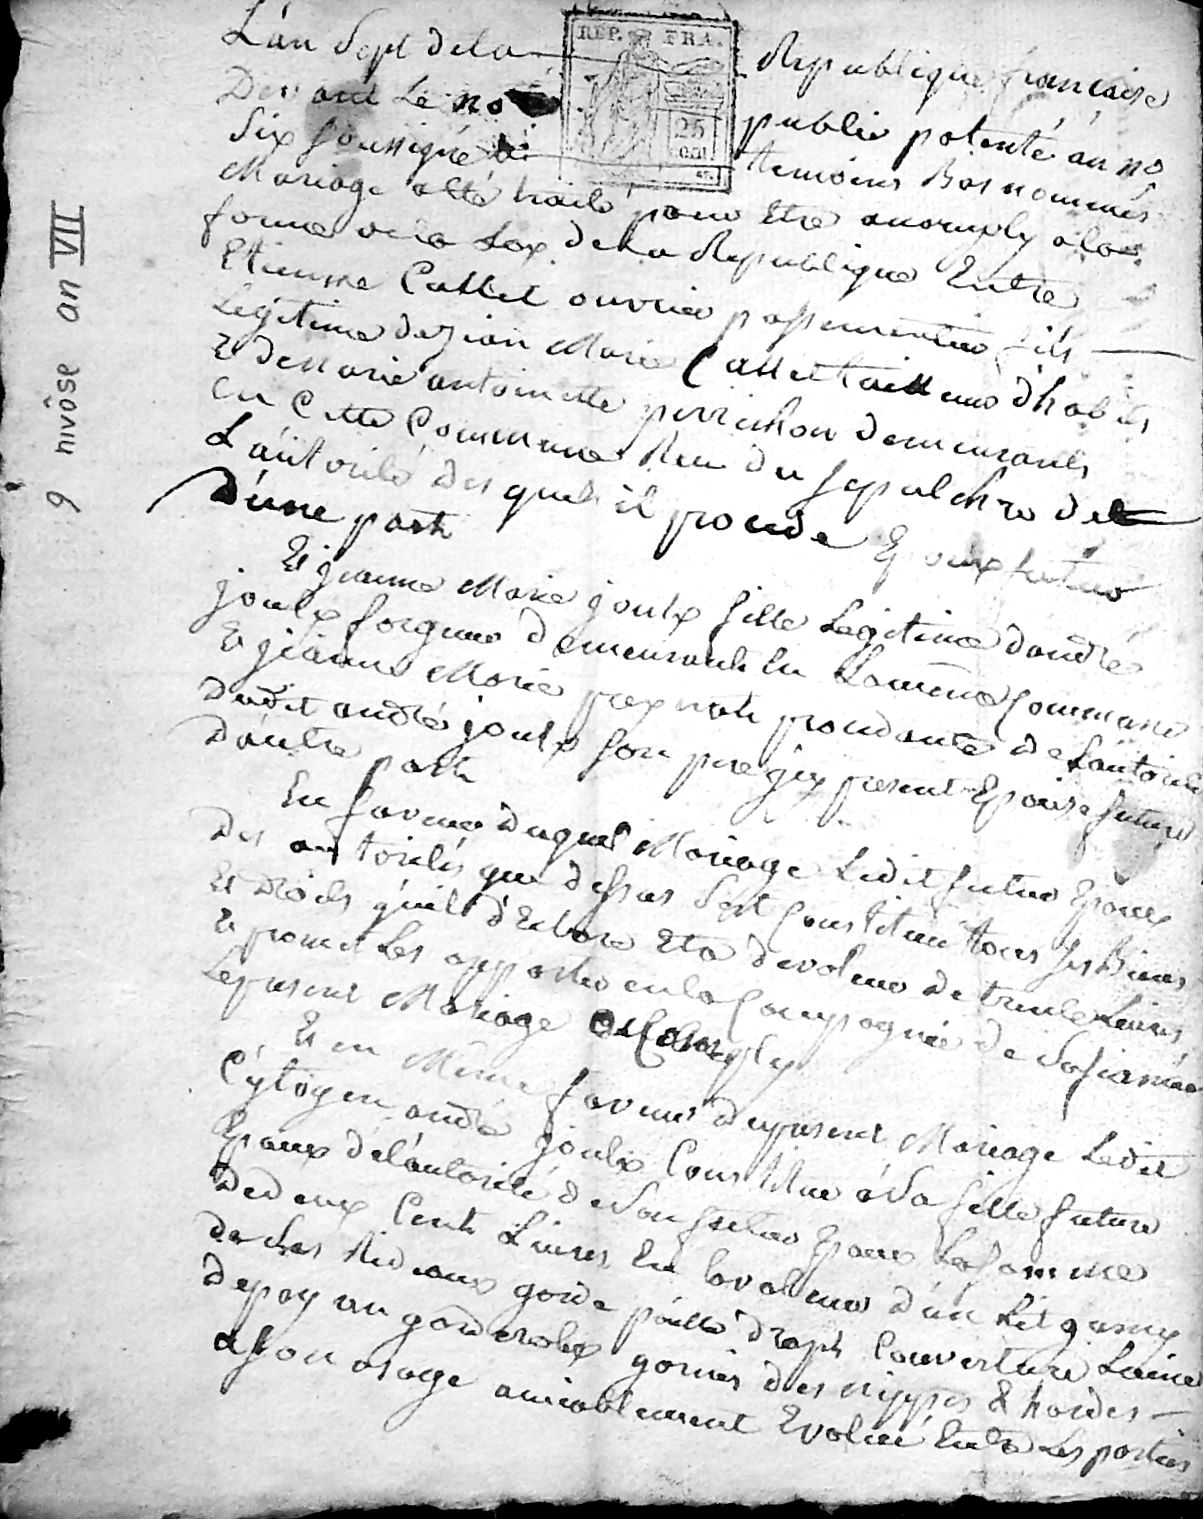 L'an Sept dela Republique francaise
REP. FRA.
25
Devant Le no public patenté au no
Six soussigné temoins Bas nommés
Mariage a été traité pour Etre accomply a la
forme de la Loy de La Republique Entre
Etienne Callet ouvrier passementier fils
Legitime de Jean Marie Callet tailleur d'habits
& de Marie antoinette perrichon demeurants
En Cette Commune Rue du Sepulchre de
L'autorité des quels il procede Epoux futur
D'une part
Et jeanne Marie joulx fille Legitime d'andré
joulx forgeur demeurant En La meme Commune
Et jeanne Marie procedante de L'autorité
dudit andré joulx son pere yci present Epouse future
D'autre part
En faveur duquel Mariage Ledit futur Epoux
Des autorités que dessus S'est Constitué tous ses Biens
Et Droits qu'il d'Eclare Etre de valeur de trente Livres
Et promet Les apporter en la Compagnie de Sa fiancée
Le present Mariage accomply
Et en Même faveur du present Mariage Ledit
Cytoyen andré joulx Constitue a Sa fille future
Epouse de L'autorité de Son futur Epoux La somme
De deux Cents Livres En la valeur d'un Lit garny
de Ses Rideaux garde paille draps Couverture Laine
garnies des nippes & hardes
a son usage amiablement Evalué Entre Les parties
9 nivôse an VII